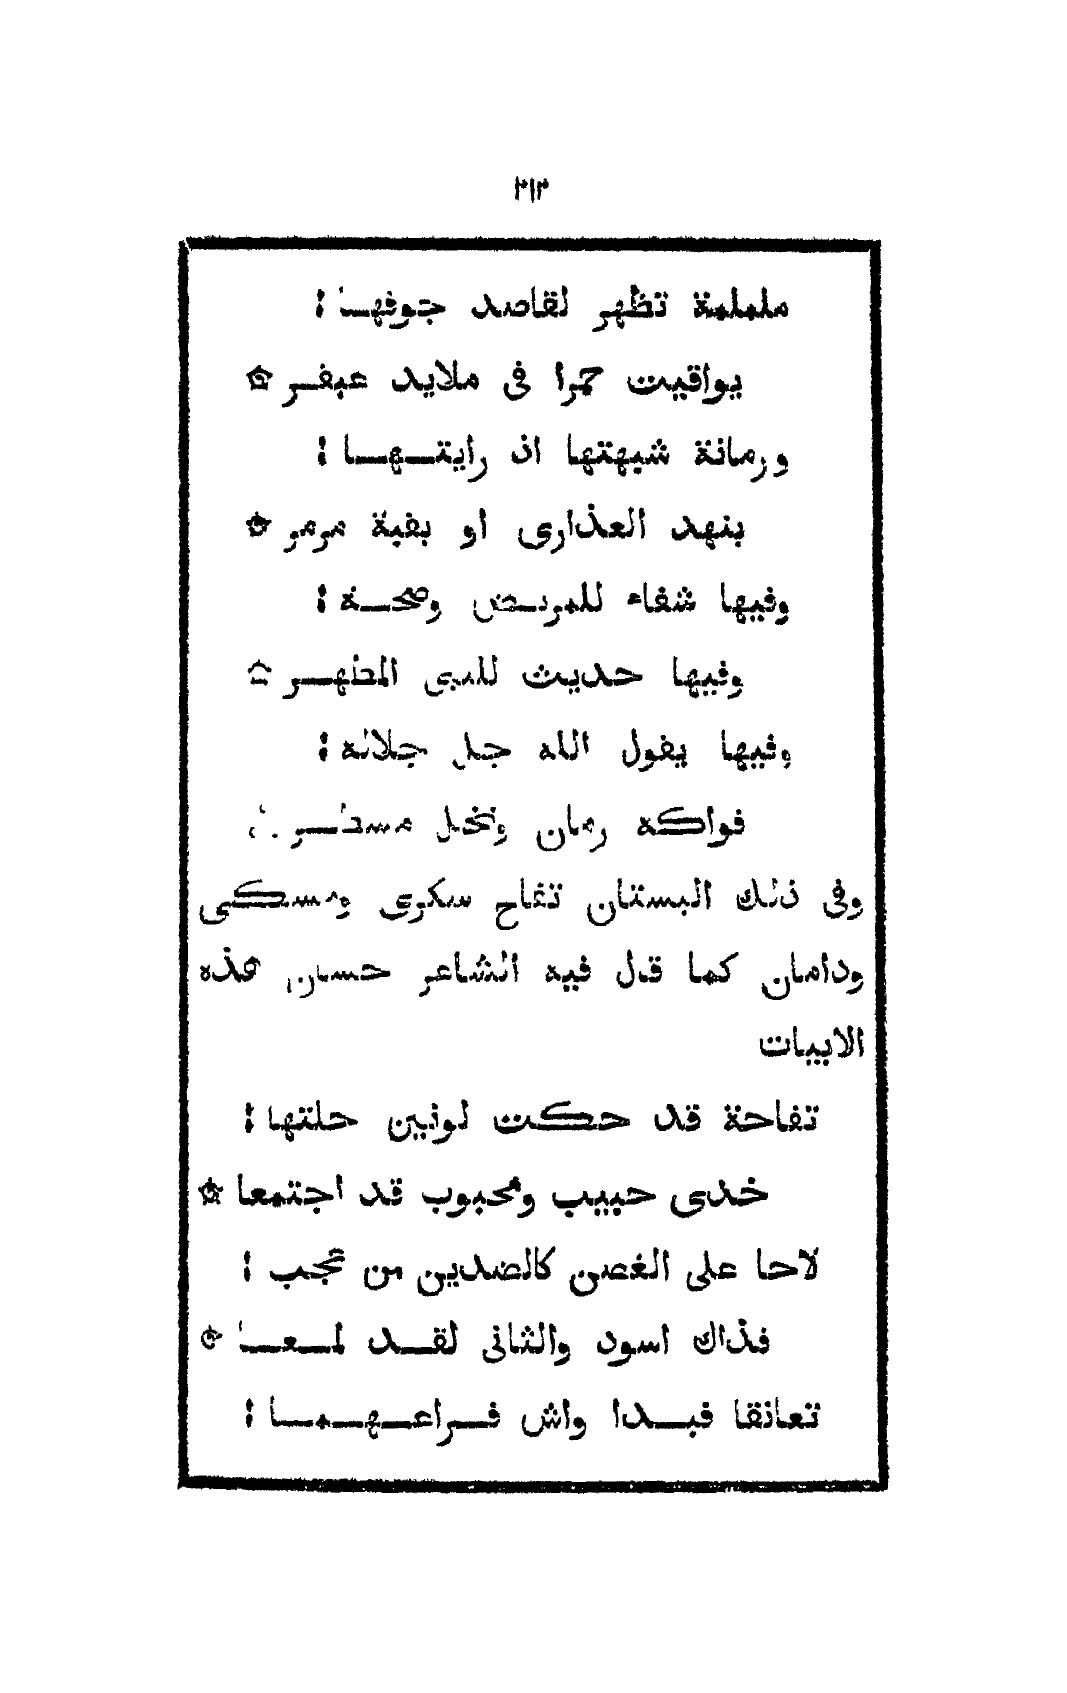 ٣١٣
ململمة تظهر لقاصد جوفها :
يواقيت حمرا فى ملايد عبقر ۞
ورمانة شبهتها اذ رايتـــها :
بنهد العذارى او بقبة مرمر ۞
وفيها شفاء للمريض وصحــة :
وفيها حديث للنبى المطهـــر ۞
وفيها يقول الله جل جلاله :
فواكه رمان ونخل مسطـــر ۞
وفى ذلك البستان تفاح سكرى ومسكى
ودامان كما قال فيه الشاعر حسان هذه
الابيات
تفاحة قد حكت لونين حلتها :
خدى حبيب ومحبوب قد اجتمعا ۞
لاحا على الغصن كالضدين من عجب :
فذاك اسود والثانى لقـــد لمـــعـــا ۞
تعانقا فبـــدا واش فـــراعـــهـــمـــا :